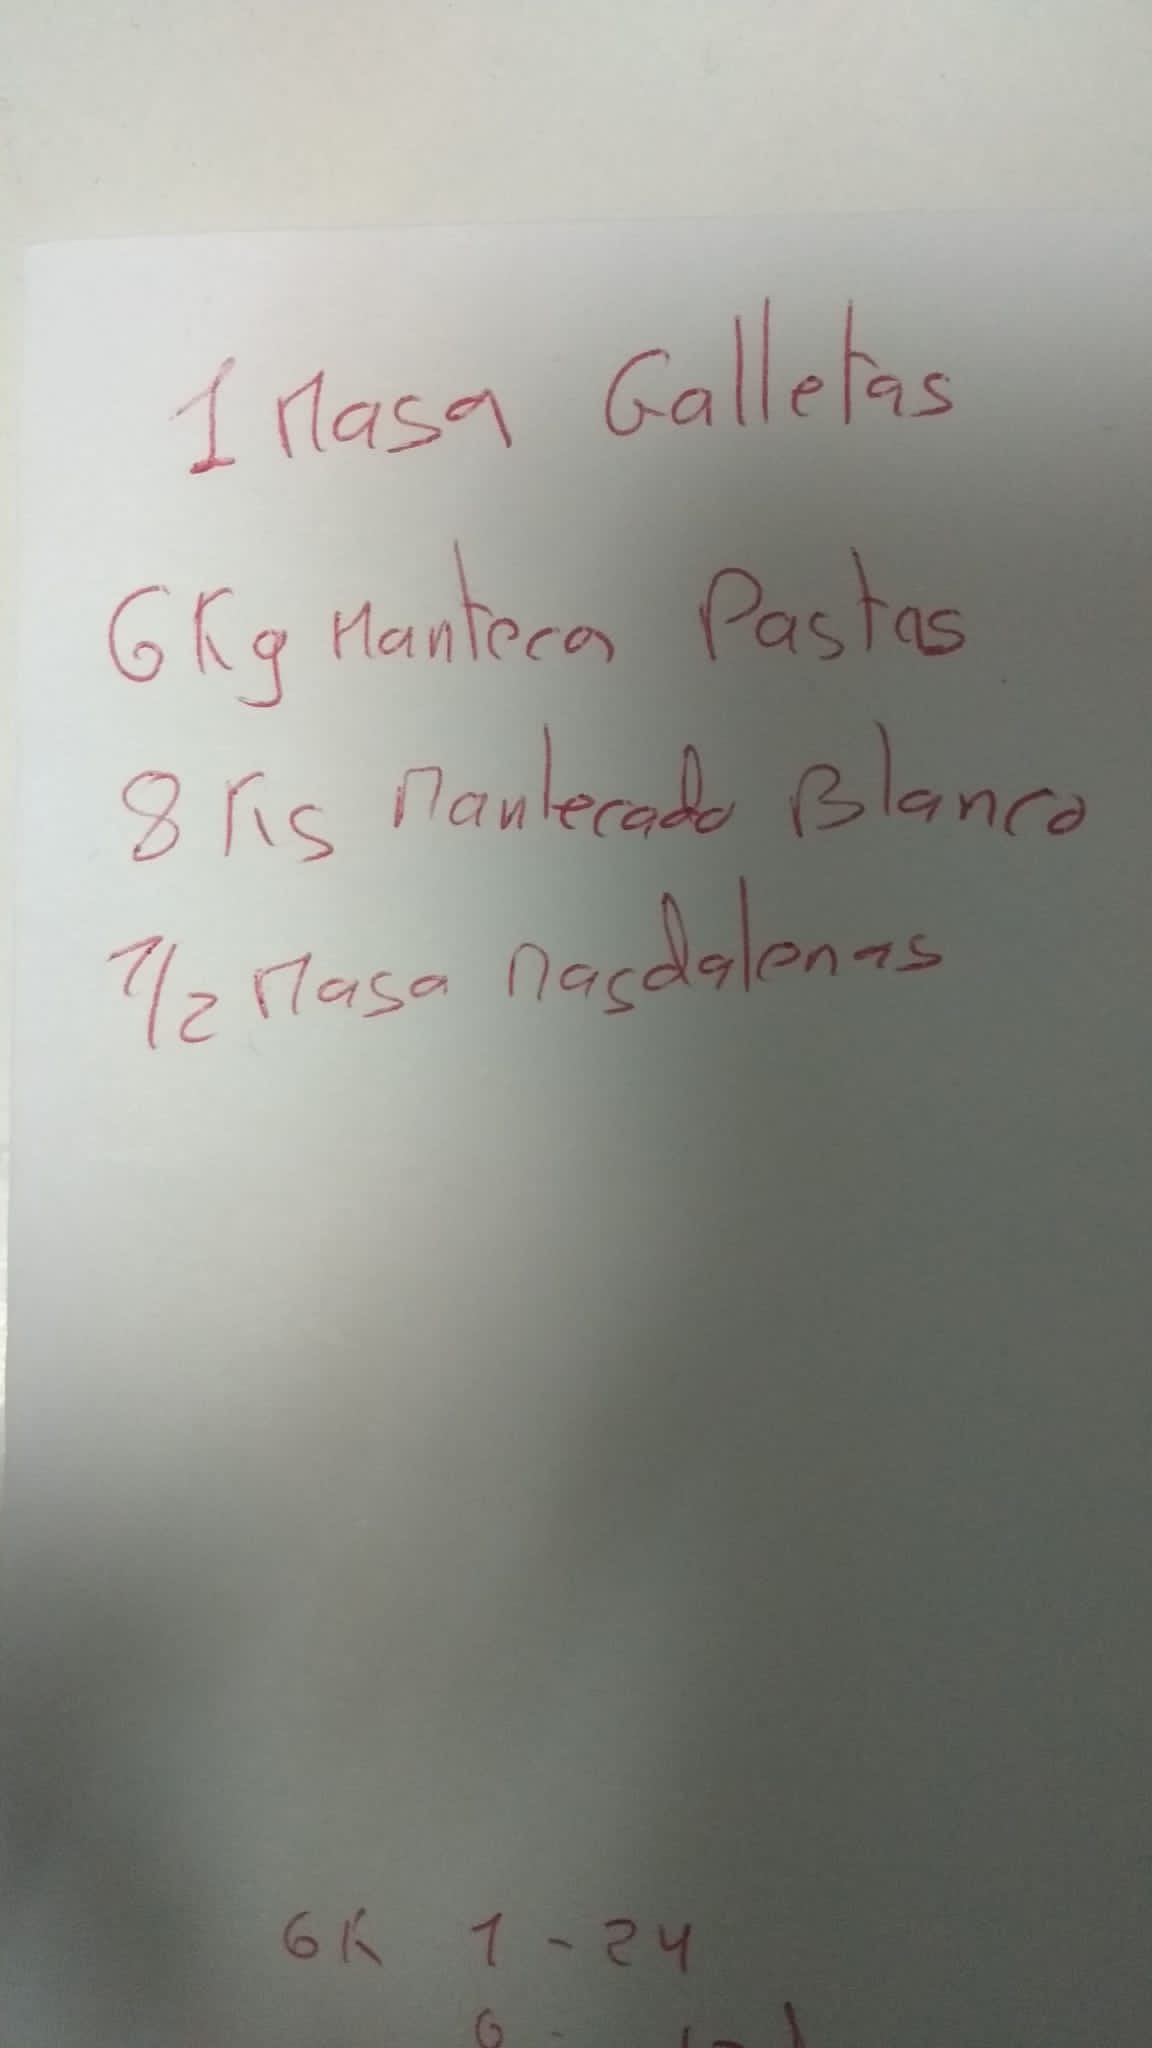 1 Masa Galletas
6Kg Manteca Pastas
8 KS Mantecado Blanco
1/2 Masa Magdalenas
6K 1-24